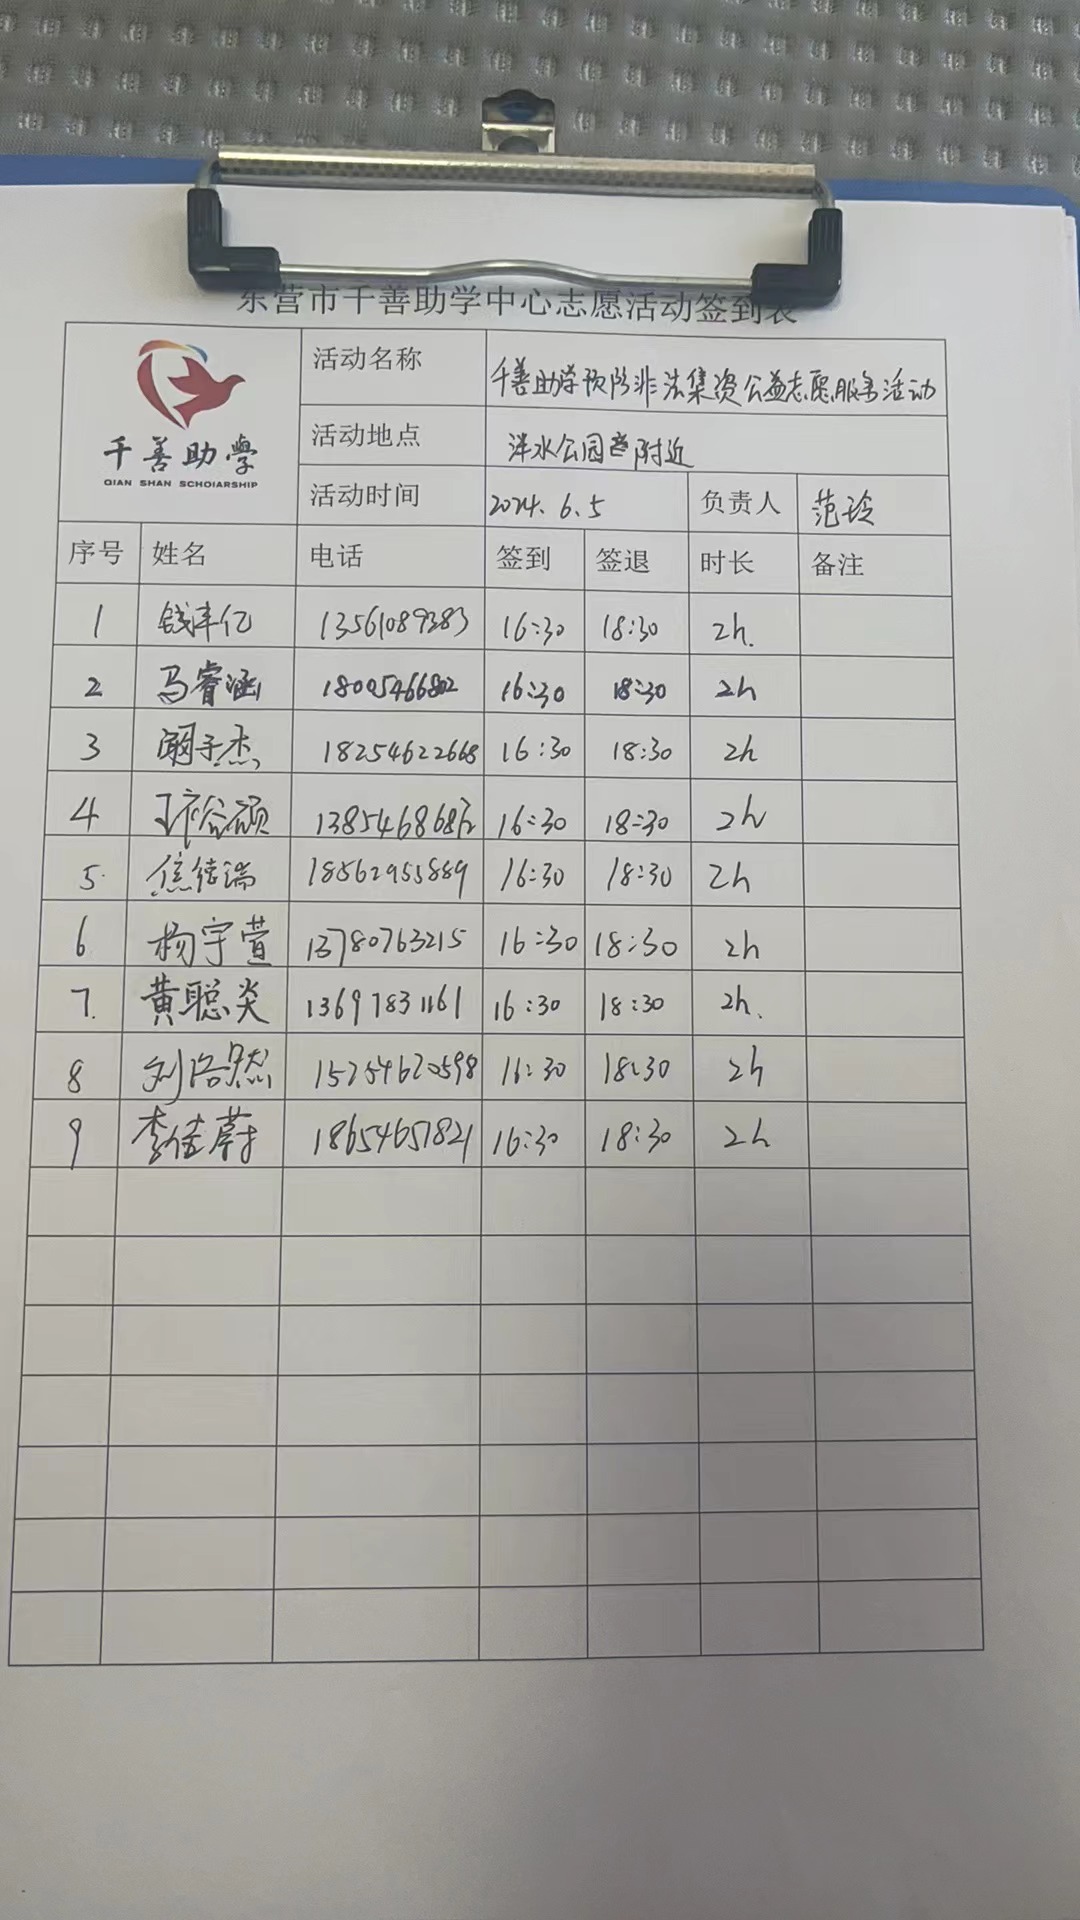 东营市千善助学中心志愿活动签到表
千善助学
QIAN SHAN SCHOIARSHIP
活动名称 千善助学预防非法集资公益志愿服务活动
活动地点 洋水公园 附近
活动时间 2024.6.5 负责人 范玲
序号 姓名 电话 签到 签退 时长 备注
1 钱丰亿 13561089383 16:30 18:30 2h.
2 马睿涵 18005466802 16:30 18:30 2h
3 子杰 18254622668 16:30 18:30 2h
4 16:30 18:30 2h
5. 焦绪瑞 18562955889 16:30 18:30 2h
6 杨宇萱 13780763215 16:30 18:30 2h
7. 黄聪炎 13697831161 16:30 18:30 2h.
8 刘洛然 15254620598 16:30 18:30 2h
9 李佳蔚 18654651821 16:30 18:30 2h